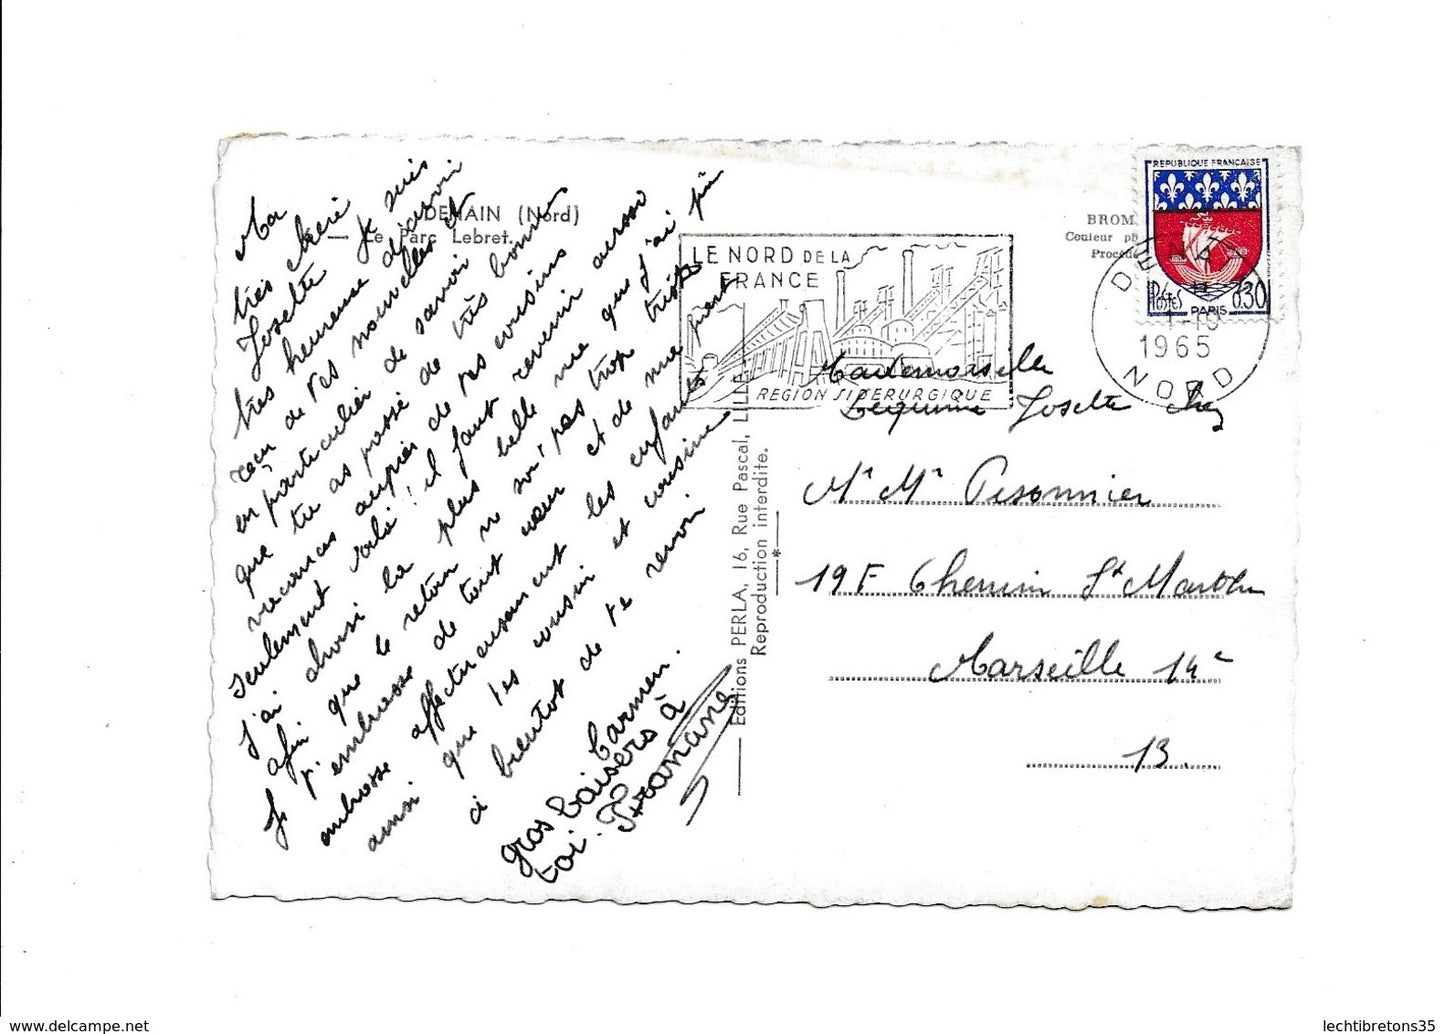 DENAIN (Nord)
Le Parc Lebret.
Ma
très chère
Josette je suis
très heureuse d'avoir
recu de tes nouvelles et
en particulier de savoir
que tu as passé de très bonnes
vacances auprès de tes cousins
seulement voilà! il faut revenir aussi
j'ai choisi la plus belle vue que j'ai pu
afin que le retour ne soi pas trop triste
Je t'embrasse de tout cœur et de
embrasse affectueusement les enfants
ainsi que tes cousin et cousine
à bientot de te revoir
Carmen.
gros baisers à
toi.
Editions PERLA, 16, Rue Pascal, LILLE
Reproduction interdite.
LE NORD DE LA
FRANCE
REGION SIDERURGIQUE
BROM
Couleur
Procédé
REPUBLIQUE FRANÇAISE
Postes 0.30
PARIS
DENAIN
1-10
1965
NORD
Mademoiselle
Josette chez
Mr Me Pesonnier
19 F Chemin St Marthe
Marseille 14e
13.
lechtibretons35